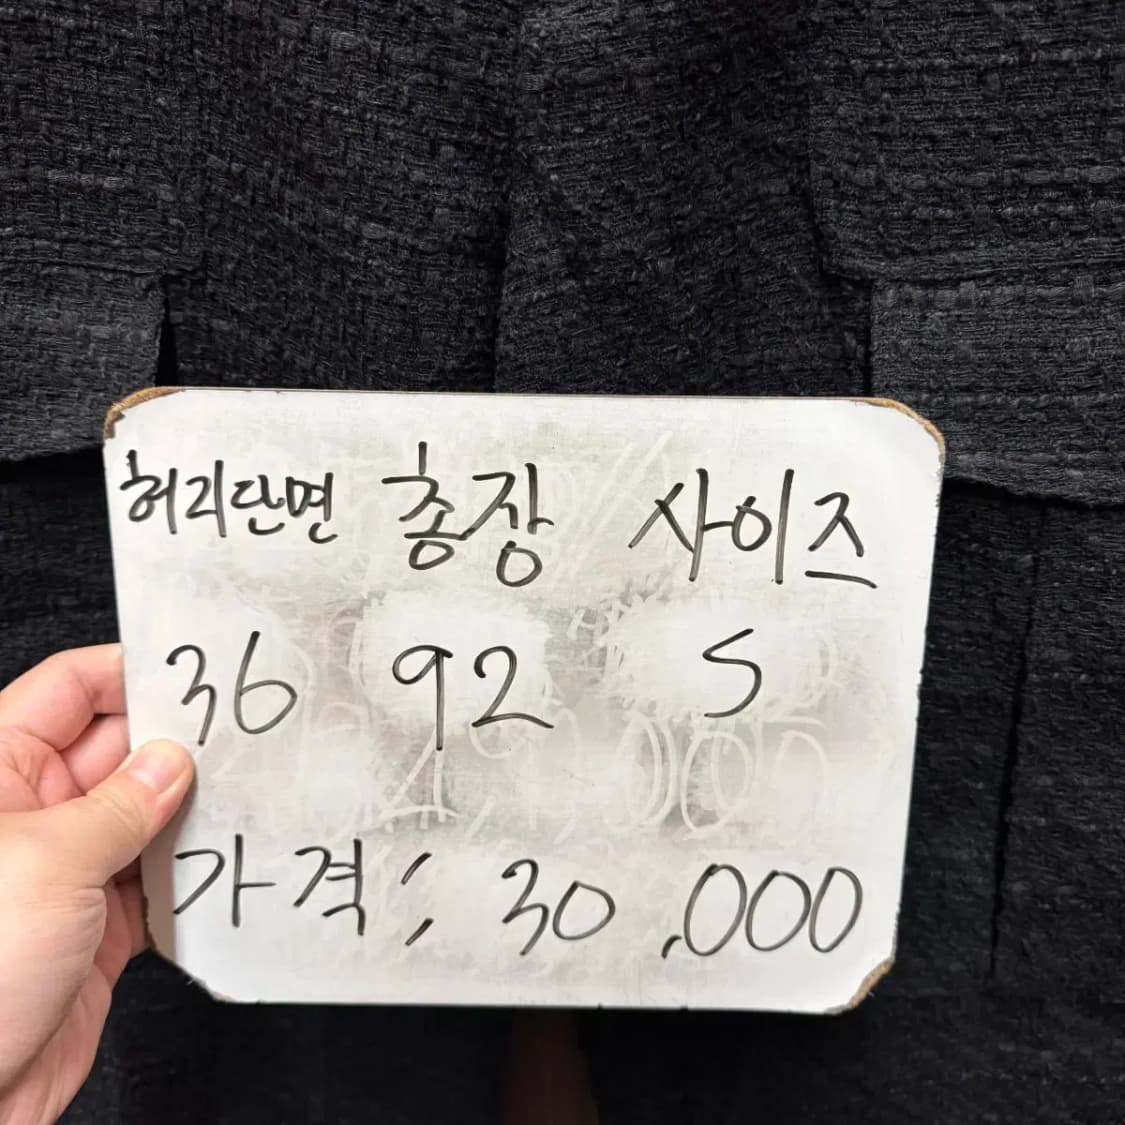 허리단면 총장 사이즈
36 92 S
가격; 30,000